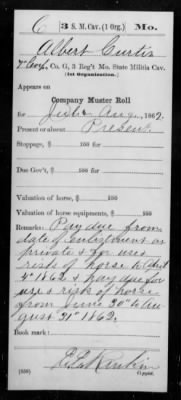 C 3 S. M. Cav. (1 Org.) Mo.
Albert Curtis
Co. G, 3 Reg't Mo. State Militia Cav.
(1st Organization.)
Appears on
Company Muster Roll
for July & Aug., 1862.
Present or absent Present.
Stoppage, $ 100 for
Due Gov't, $ 100 for
Valuation of horse, $ 100
Valuation of horse equipments, $ 100
Remarks: Pay due from
date of Enlistment as
private & for use &
risk of horse to
4" 1862 & pay due for
use & risk of horse
from June 30" to Au-
gust 31" 1862.
Book mark:
(859) Copyist.